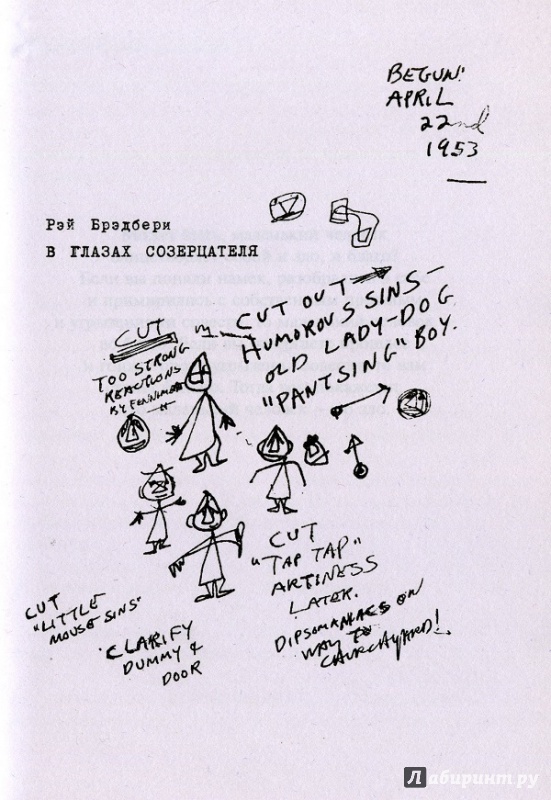 BEGUN:
APRIL
22nd
1953
Рэй Брэдбери
В ГЛАЗАХ СОЗЕРЦАТЕЛЯ
CUT OUT
HUMOROUS SINS—
OLD LADY-DOG
"PANTSING" BOY.
CUT
TOO STRONG
REACTIONS
BY
CUT
"TAP TAP"
ARTINESS
LATER.
DIPSOMANIACS ON
WAY TO
CHURCHYARD!
CUT
"LITTLE
MOUSE SINS"
CLARIFY
DUMMY &
DOOR
Лабиринт.ру